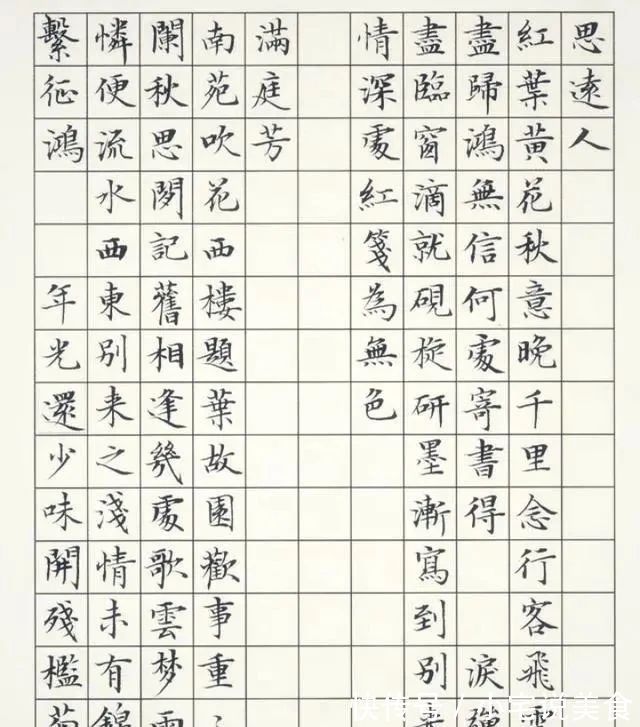 思遠人
紅葉黃花秋意晚千里念行客飛
盡歸鴻無信何處寄書得 淚彈
盡臨窗滴就硯旋研墨漸寫到別
情深處紅箋為無色
滿庭芳
南苑吹花西樓題葉故園歡事重
闌秋思閒記舊相逢幾處歌雲梦雨
憐便流水西東別来久淺情未有錦
繫征鴻 年光還少味開殘檻菊
快传号/